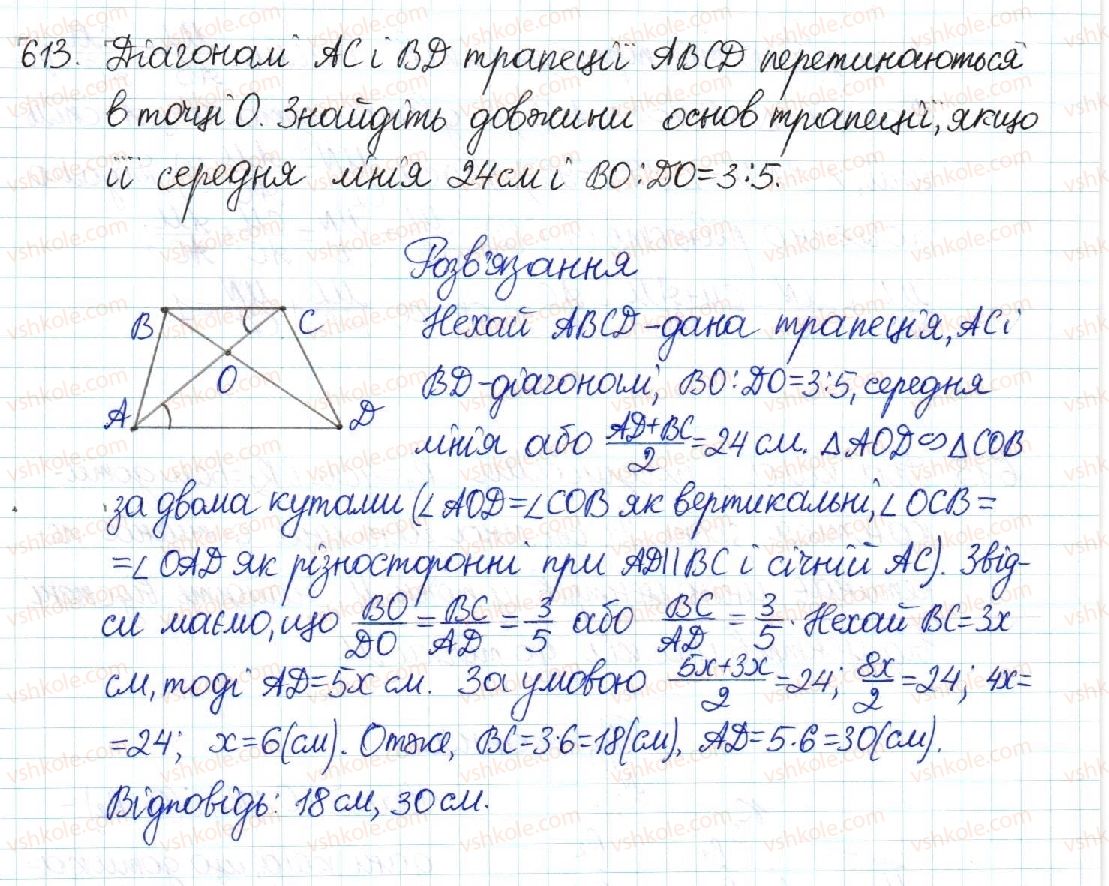 613. Діагоналі AC і BD трапеції ABCD перетинаються
в точці O. Знайдіть довжини основ трапеції, якщо
її середня лінія 24 см і BO:DO=3:5.
Розв'язання
B C
O
A D
Нехай ABCD-дана трапеція, AC і
BD-діагоналі, BO:DO=3:5, середня
лінія або (AD+BC)/2=24 см. △AOD∽△COB
за двома кутами (∠AOD=∠COB як вертикальні, ∠OCB=
=∠OAD як різносторонні при AD||BC і січній AC). Звід-
си маємо, що BO/DO=BC/AD=3/5 або BC/AD=3/5. Нехай BC=3x
см, тоді AD=5x см. За умовою (5x+3x)/2=24; 8x/2=24; 4x=
=24; x=6(см). Отже, BC=3·6=18(см), AD=5·6=30(см).
Відповідь: 18 см, 30 см.
vshkole.com